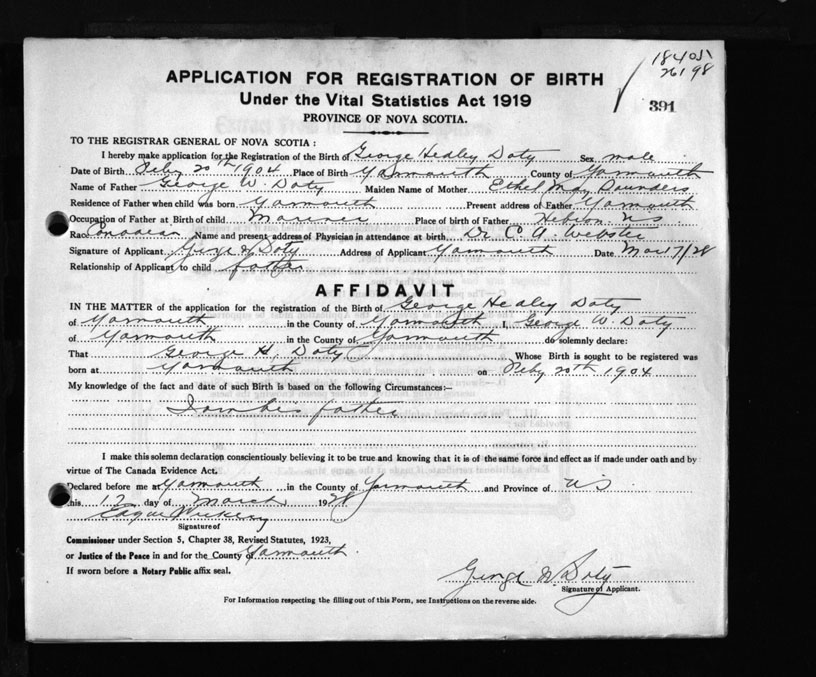 18405
26198
APPLICATION FOR REGISTRATION OF BIRTH
Under the Vital Statistics Act 1919
391
PROVINCE OF NOVA SCOTIA.
TO THE REGISTRAR GENERAL OF NOVA SCOTIA :
I hereby make application for the Registration of the Birth of George Hedley Doty Sex male
Date of Birth Feby 20th 1904 Place of Birth Yarmouth County of Yarmouth
Name of Father George W. Doty Maiden Name of Mother Ethel May Saunders
Residence of Father when child was born Yarmouth Present address of Father Yarmouth
Occupation of Father at Birth of child Mariner Place of birth of Father Hebron NS
Race Canadian Name and present address of Physician in attendance at birth Dr C. A. Webster
Signature of Applicant George W Doty Address of Applicant Yarmouth Date Mar 17/28
Relationship of Applicant to child father
AFFIDAVIT
IN THE MATTER of the application for the registration of the Birth of George Hedley Doty
of Yarmouth in the County of Yarmouth I, George W. Doty
of Yarmouth in the County of Yarmouth do solemnly declare:
That George H. Doty Whose Birth is sought to be registered was
born at Yarmouth on Feby 20th 1904
My knowledge of the fact and date of such Birth is based on the following Circumstances:—
I am his father
I make this solemn declaration conscientiously believing it to be true and knowing that it is of the same force and effect as if made under oath and by
virtue of The Canada Evidence Act.
Declared before me at Yarmouth in the County of Yarmouth and Province of NS
this 17 day of March 1928
Signature of
Commissioner under Section 5, Chapter 38, Revised Statutes, 1923,
or Justice of the Peace in and for the County of Yarmouth.
If sworn before a Notary Public affix seal.
George W. Doty
Signature of Applicant.
For Information respecting the filling out of this Form, see Instructions on the reverse side.